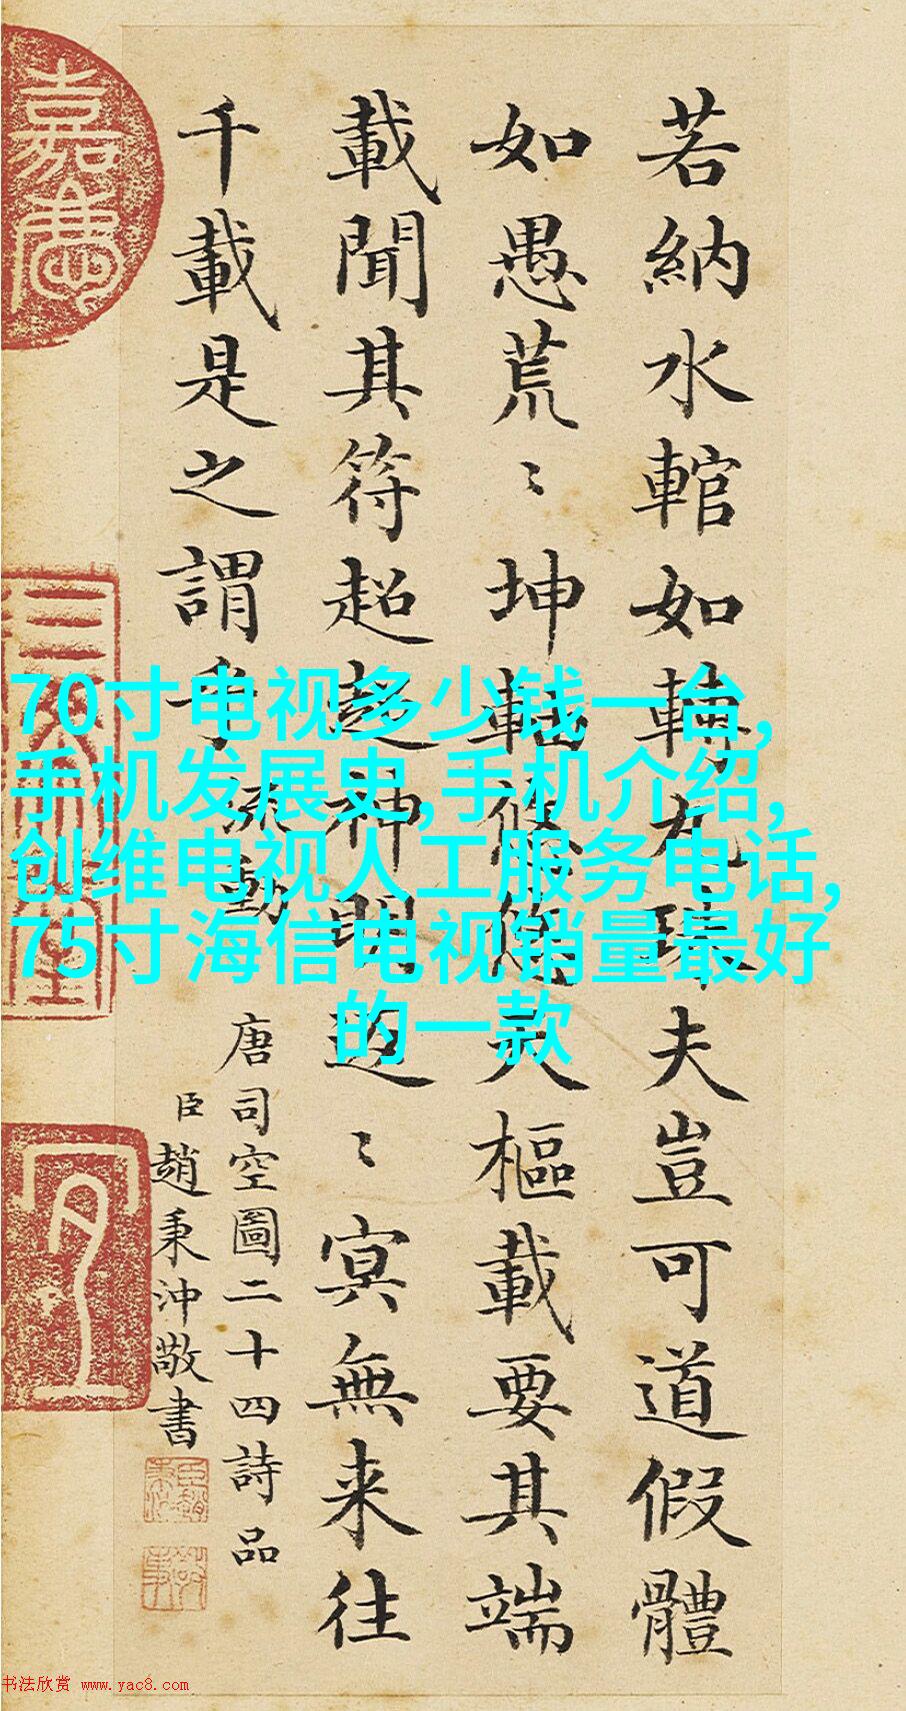 若納水輨如轉丸珠夫豈可道假體
如愚荒〻坤軸悠悠天樞載要其端
載聞其符超超神明返〻冥無来往
千載是之謂乎 流動
唐司空圖二十四詩品
臣趙秉沖敬書
嘉慶
70寸电视多少钱一台,
手机发展史,手机介绍,
创维电视人工服务电话,
75寸海信电视销量最好
的一款
书法欣赏 www.yac8.com